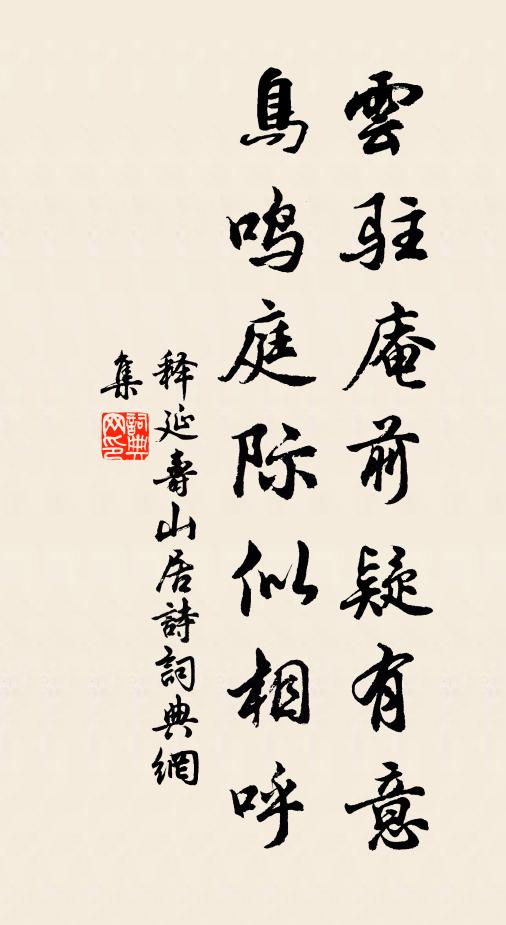 雲駐庵前疑有意
鳥鸣庭际似相呼
释延壽山居詩詞典網
集
詞典网印